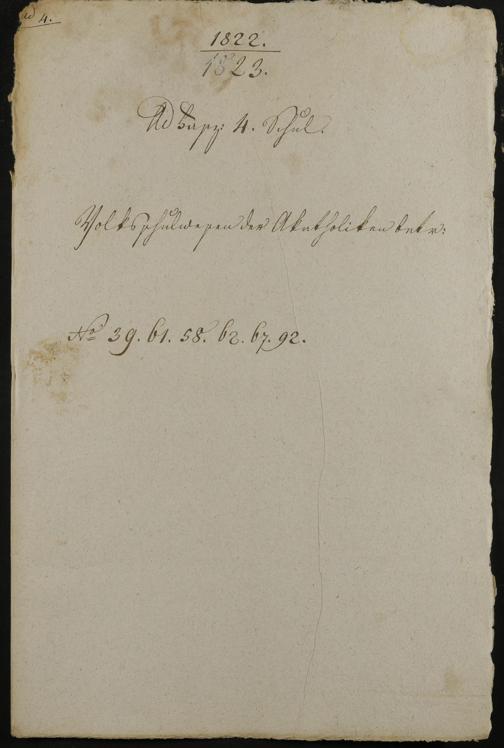 ad 4.
1822.
1823.
Ad 4. Schul.
Volksschulwesen der Akatholiken betr:
No 39. 61. 58. 62. 67. 92.